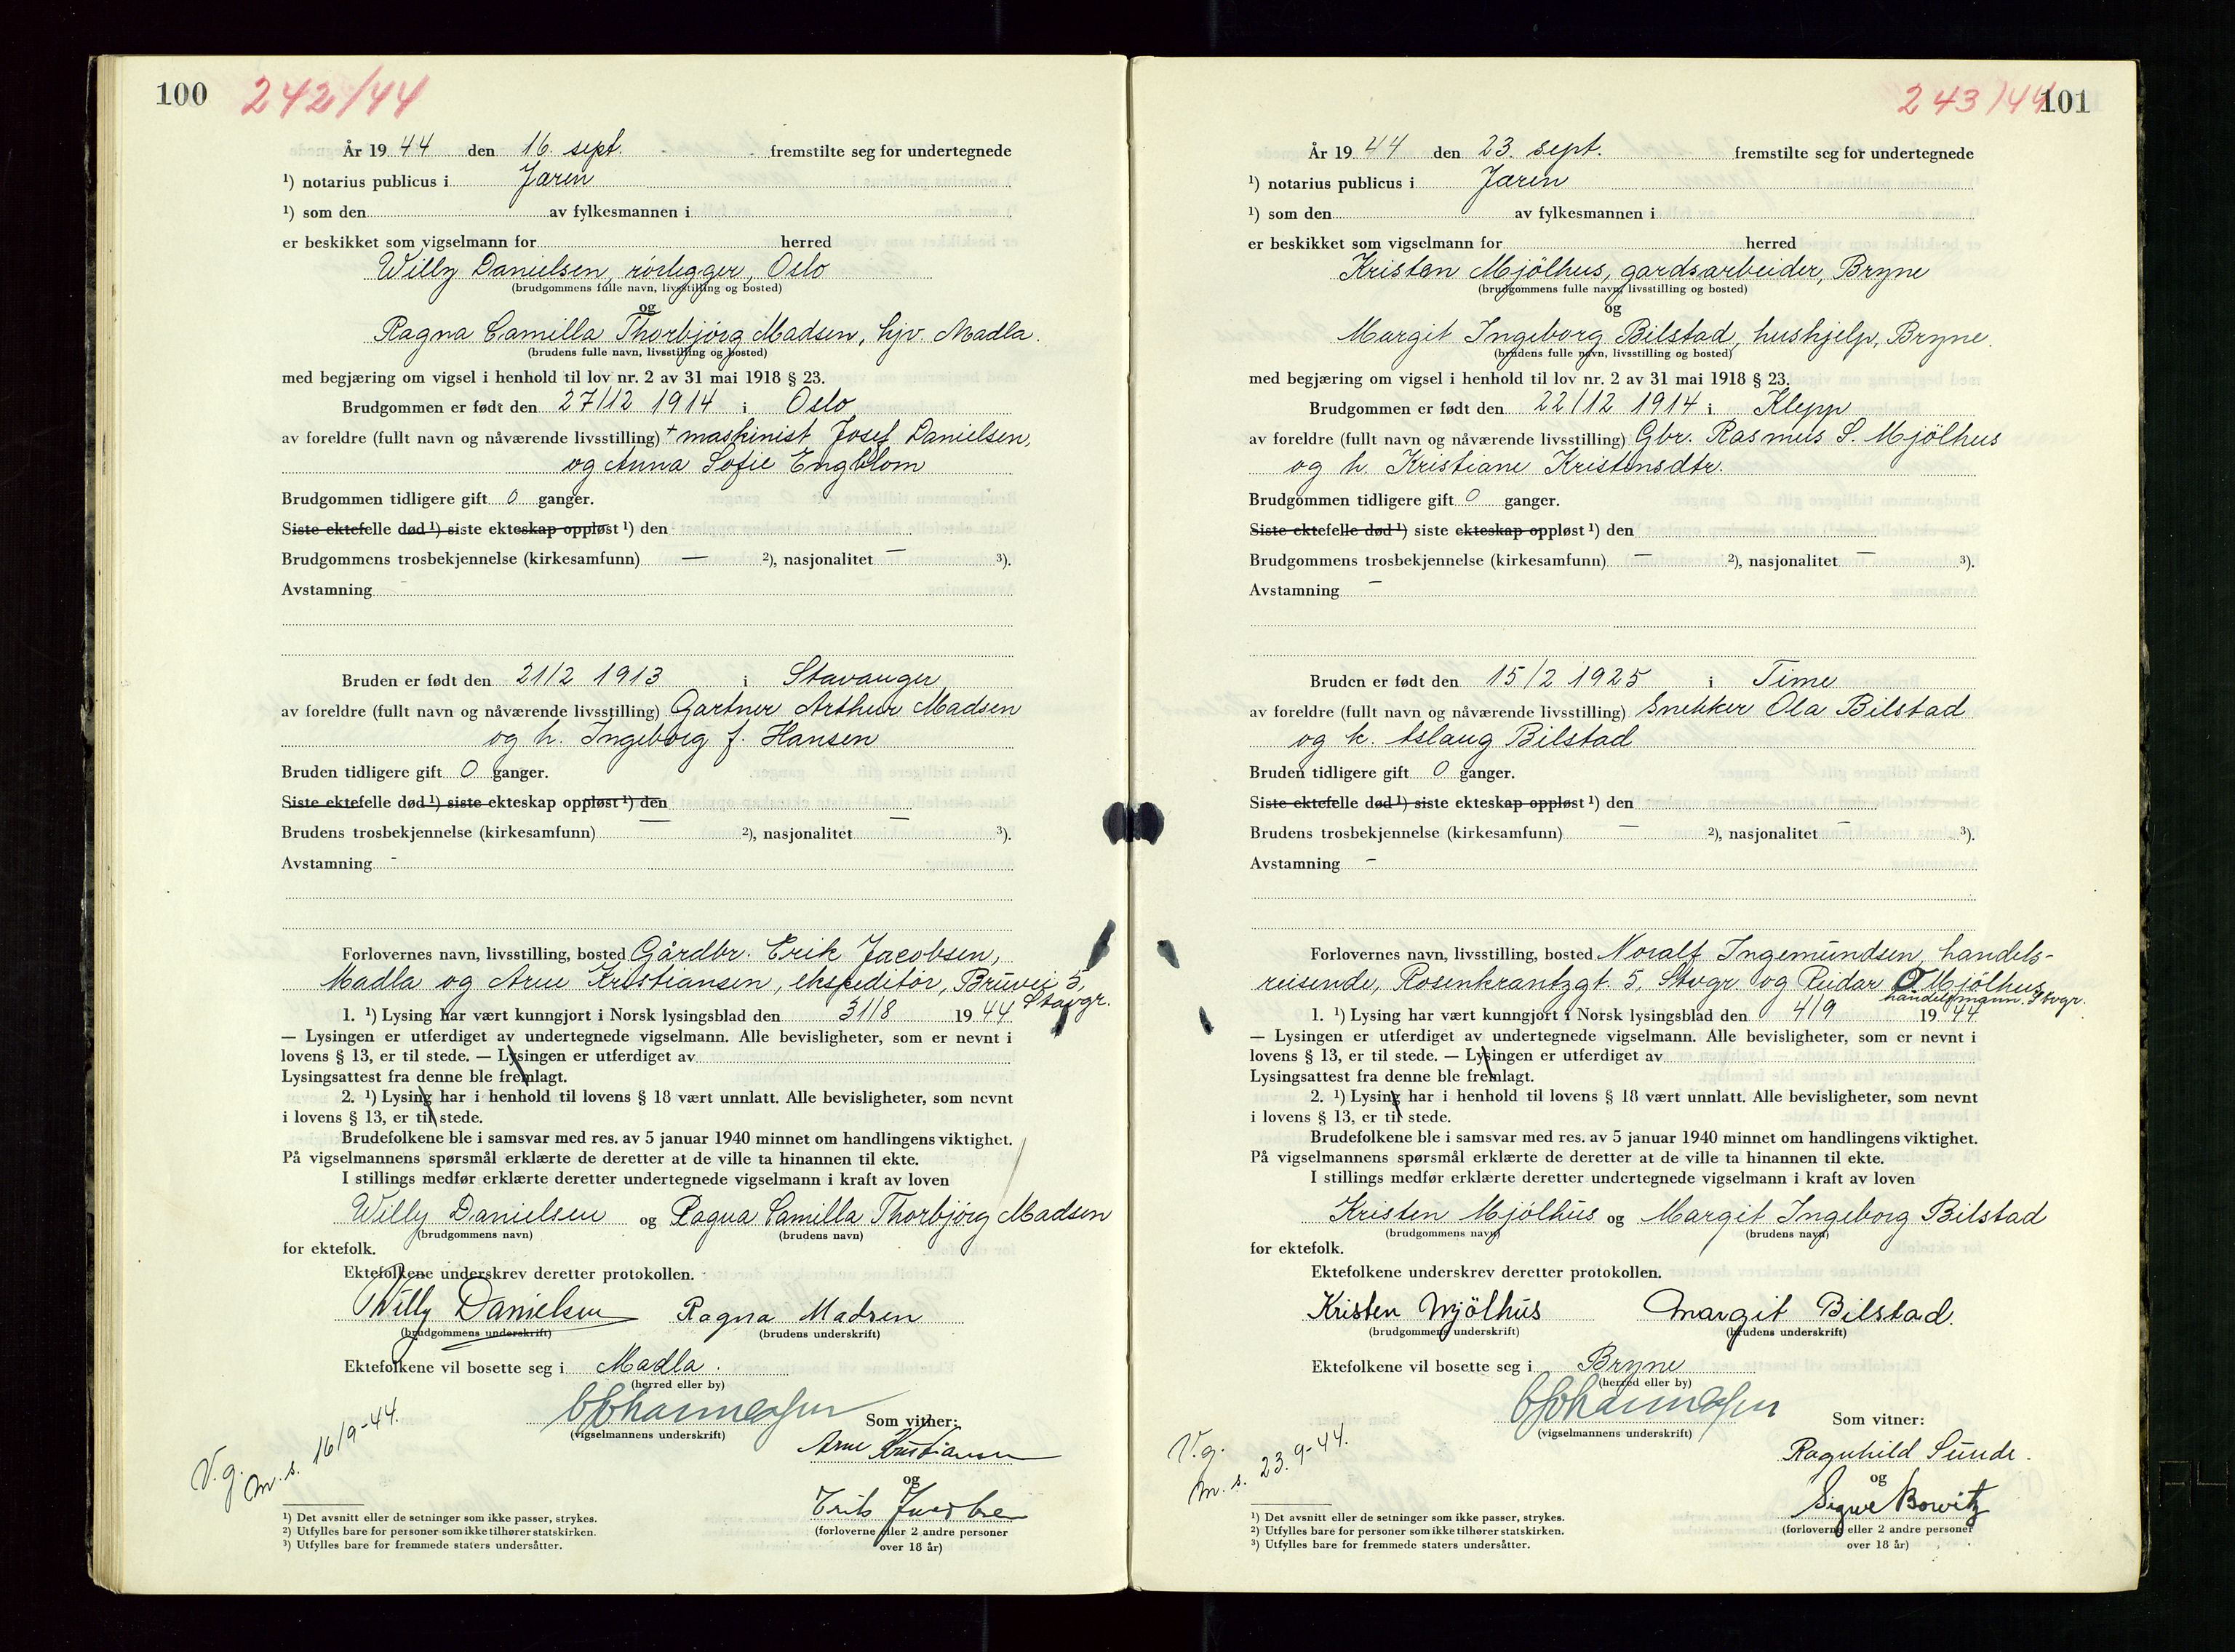 100 242/44
År 19 44 den 16. sept. fremstilte seg for undertegnede
¹) notarius publicus i Jæren
¹) som den av fylkesmannen i
er beskikket som vigselmann for herred
Willy Danielsen, rörlegger, Oslo
(brudgommens fulle navn, livsstilling og bosted)
og
Ragna Camilla Thorbjörg Madsen, hjv. Madla.
(brudens fulle navn, livsstilling og bosted)
med begjæring om vigsel i henhold til lov nr. 2 av 31 mai 1918 § 23.
Brudgommen er født den 27/12 1914 i Oslo
av foreldre (fullt navn og nåværende livsstilling) + maskinist Josef Danielsen,
og Anna Sofie Engblom
Brudgommen tidligere gift 0 ganger.
Siste ektefelle død ¹) siste ekteskap oppløst ¹) den
Brudgommens trosbekjennelse (kirkesamfunn) — ²), nasjonalitet — ³).
Avstamning -
Bruden er født den 21/2 1913 i Stavanger
av foreldre (fullt navn og nåværende livsstilling) Gartner Arthur Madsen
og h. Ingeborg f. Hansen
Bruden tidligere gift 0 ganger.
Siste ektefelle død ¹) siste ekteskap oppløst ¹) den
Brudens trosbekjennelse (kirkesamfunn) — ²), nasjonalitet — ³).
Avstamning -
Forlovernes navn, livsstilling, bosted Gårdbr. Erik Jacobsen,
Madla og Arne Kristiansen, ekspeditör, Bruvei 5,
Stavgr.
1. ¹) Lysing har vært kunngjort i Norsk lysingsblad den 31/8 19 44
— Lysingen er utferdiget av undertegnede vigselmann. Alle bevisligheter, som er nevnt i
lovens § 13, er til stede. — Lysingen er utferdiget av
Lysingsattest fra denne ble fremlagt.
2. ¹) Lysing har i henhold til lovens § 18 vært unnlatt. Alle bevisligheter, som nevnt
i lovens § 13, er til stede.
Brudefolkene ble i samsvar med res. av 5 januar 1940 minnet om handlingens viktighet.
På vigselmannens spørsmål erklærte de deretter at de ville ta hinannen til ekte.
I stillings medfør erklærte deretter undertegnede vigselmann i kraft av loven
Willy Danielsen og Ragna Camilla Thorbjörg Madsen
(brudgommens navn) (brudens navn)
for ektefolk.
Ektefolkene underskrev deretter protokollen.
Willy Danielsen Ragna Madsen
(brudgommens underskrift) (brudens underskrift)
Ektefolkene vil bosette seg i Madla.
(herred eller by)
Som vitner:
(vigselmannens underskrift)
Arne Kristiansen
og
Erik Jacobsen
V.g.
m.s. 16/9-44.
(forloverne eller 2 andre personer
over 18 år)
¹) Det avsnitt eller de setninger som ikke passer, strykes.
²) Utfylles bare for personer som ikke tilhører statskirken.
³) Utfylles bare for fremmede staters undersåtter.
243/44 101
År 19 44 den 23. sept. fremstilte seg for undertegnede
¹) notarius publicus i Jæren
¹) som den av fylkesmannen i
er beskikket som vigselmann for herred
Kristen Mjölhus, gardsarbeider, Bryne
(brudgommens fulle navn, livsstilling og bosted)
og
Margit Ingeborg Bilstad, hushjelp, Bryne.
(brudens fulle navn, livsstilling og bosted)
med begjæring om vigsel i henhold til lov nr. 2 av 31 mai 1918 § 23.
Brudgommen er født den 22/12 1914 i Klepp
av foreldre (fullt navn og nåværende livsstilling) Gbr. Rasmus S. Mjölhus
og h. Kristiane Kristensdtr.
Brudgommen tidligere gift 0 ganger.
Siste ektefelle død ¹) siste ekteskap oppløst ¹) den
Brudgommens trosbekjennelse (kirkesamfunn) — ²), nasjonalitet — ³).
Avstamning –
Bruden er født den 15/2 1925 i Time
av foreldre (fullt navn og nåværende livsstilling) Snekker Ola Bilstad
og h. Aslaug Bilstad
Bruden tidligere gift 0 ganger.
Siste ektefelle død ¹) siste ekteskap oppløst ¹) den
Brudens trosbekjennelse (kirkesamfunn) — ²), nasjonalitet — ³).
Avstamning –
Forlovernes navn, livsstilling, bosted Noralf Ingemundsen, handels-
reisende, Rosenkrantzgt. 5, Stvgr og Reidar O Mjölhus
handelsmann. Stvgr.
1. ¹) Lysing har vært kunngjort i Norsk lysingsblad den 4/9 19 44
— Lysingen er utferdiget av undertegnede vigselmann. Alle bevisligheter, som er nevnt i
lovens § 13, er til stede. — Lysingen er utferdiget av
Lysingsattest fra denne ble fremlagt.
2. ¹) Lysing har i henhold til lovens § 18 vært unnlatt. Alle bevisligheter, som nevnt
i lovens § 13, er til stede.
Brudefolkene ble i samsvar med res. av 5 januar 1940 minnet om handlingens viktighet.
På vigselmannens spørsmål erklærte de deretter at de ville ta hinannen til ekte.
I stillings medfør erklærte deretter undertegnede vigselmann i kraft av loven
Kristen Mjölhus og Margit Ingeborg Bilstad
(brudgommens navn) (brudens navn)
for ektefolk.
Ektefolkene underskrev deretter protokollen.
Kristen Mjölhus Margit Bilstad.
(brudgommens underskrift) (brudens underskrift)
Ektefolkene vil bosette seg i Bryne
(herred eller by)
Som vitner:
(vigselmannens underskrift)
Ragnhild Sunde.
og
Signe Bowitz
V.g.
m.s. 23.9-44.
(forloverne eller 2 andre personer
over 18 år)
¹) Det avsnitt eller de setninger som ikke passer, strykes.
²) Utfylles bare for personer som ikke tilhører statskirken.
³) Utfylles bare for fremmede staters undersåtter.